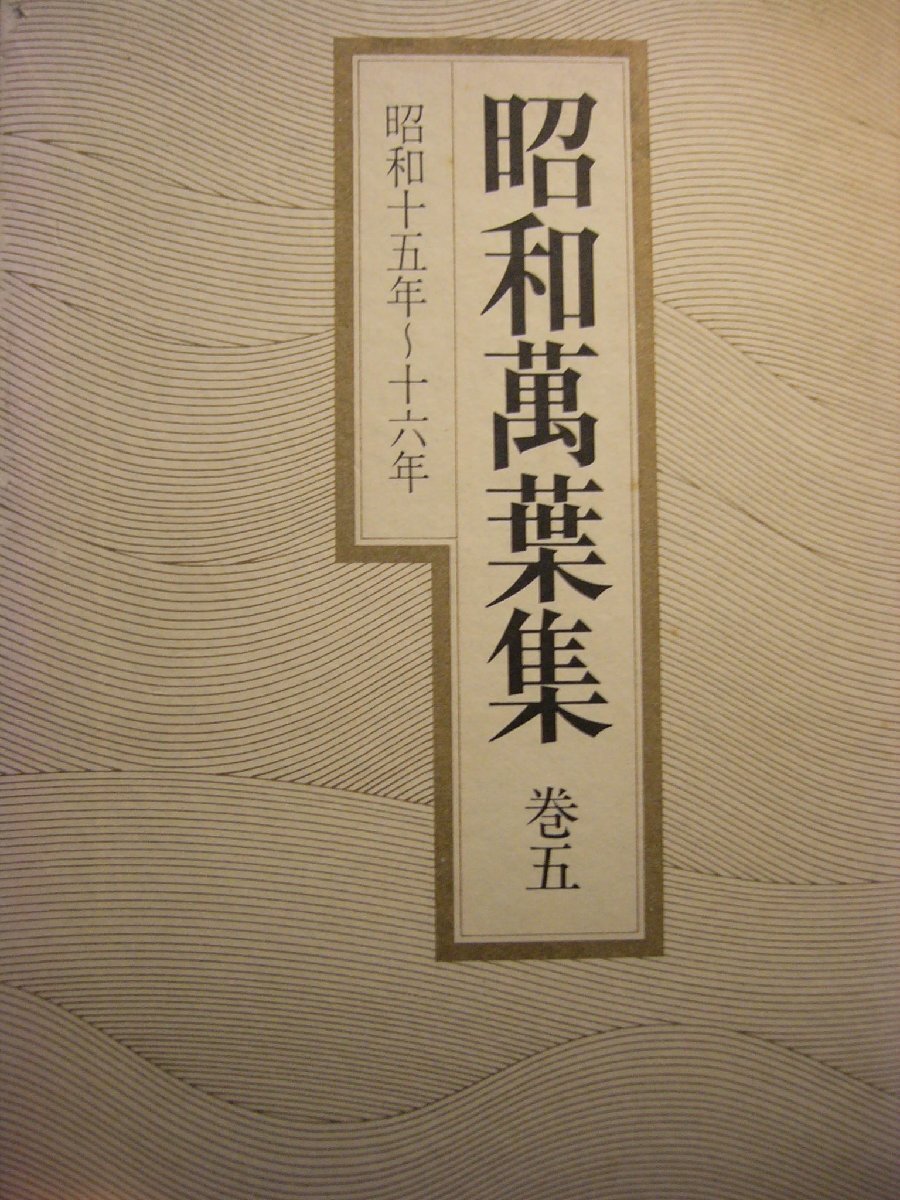 昭和萬葉集 巻五
昭和十五年～十六年